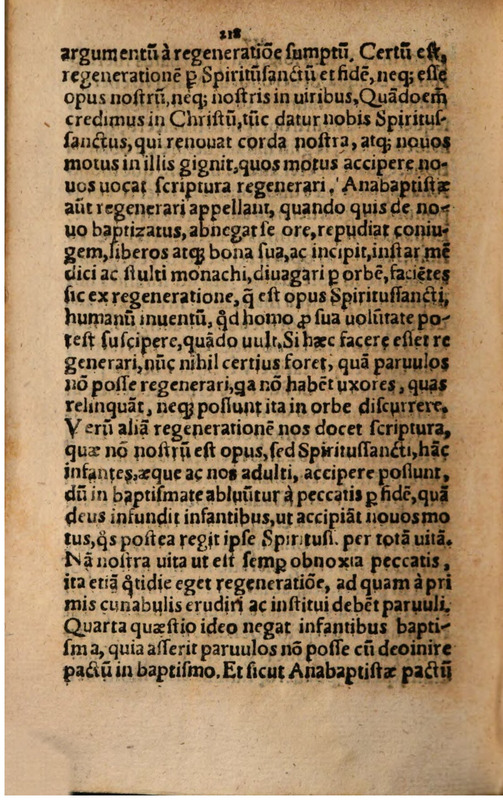 218
argumentũ à regeneratiõe sumptũ. Certũ est,
regenerationẽ ꝑ Spiritũsanctũ et fidẽ, neq; esse
opus nostrũ, neq; nostris in uiribus, Quãdoem̃
credimus in Christũ, tũc datur nobis Spiritus-
sanctus, qui renouat corda nostra, atq; nouos
motus in illis gignit, quos motus accipere no-
uos uocat scriptura regenerari. Anabaptistæ
aũt regenerari appellant, quando quis de no-
uo baptizatus, abnegat se ore, repudiat coniu-
gem, liberos atq; bona sua, ac incipit, instar mẽ
dici ac stulti monachi, diuagari ꝑ orbẽ, faciẽtes
sic ex regeneratione, q̃ est opus Spiritussancti,
humanũ inuentũ, qd̃ homo ꝓ sua uolũtate po-
test suscipere, quãdo uult. Si hæc facere esset re
generari, nũc nihil certius foret, quã paruulos
nõ posse regenerari, qa nõ habẽt uxores, quas
relinquãt, neq; possunt ita in orbe discurrere.
Verũ aliã regenerationẽ nos docet scriptura,
quæ nõ nostrũ est opus, sed Spiritussancti, hãc
infantes, æque ac nos adulti, accipere possunt,
dũ in baptismate abluũtur à peccatis ꝑ fidẽ, quã
deus infundit infantibus, ut accipiãt nouos mo
tus, q̃s postea regit ipse Spiritusf. per totã uitã.
Nã nostra uita ut est semꝑ obnoxia peccatis,
ita etiã q̃tidie eget regeneratiõe, ad quam à pri
mis cunabulis erudiri ac institui debẽt paruuli.
Quarta quæstio ideo negat infantibus bapti-
sma, quia asserit paruulos nõ posse cũ deo inire
pactũ in baptismo. Et sicut Anabaptistæ pactũ